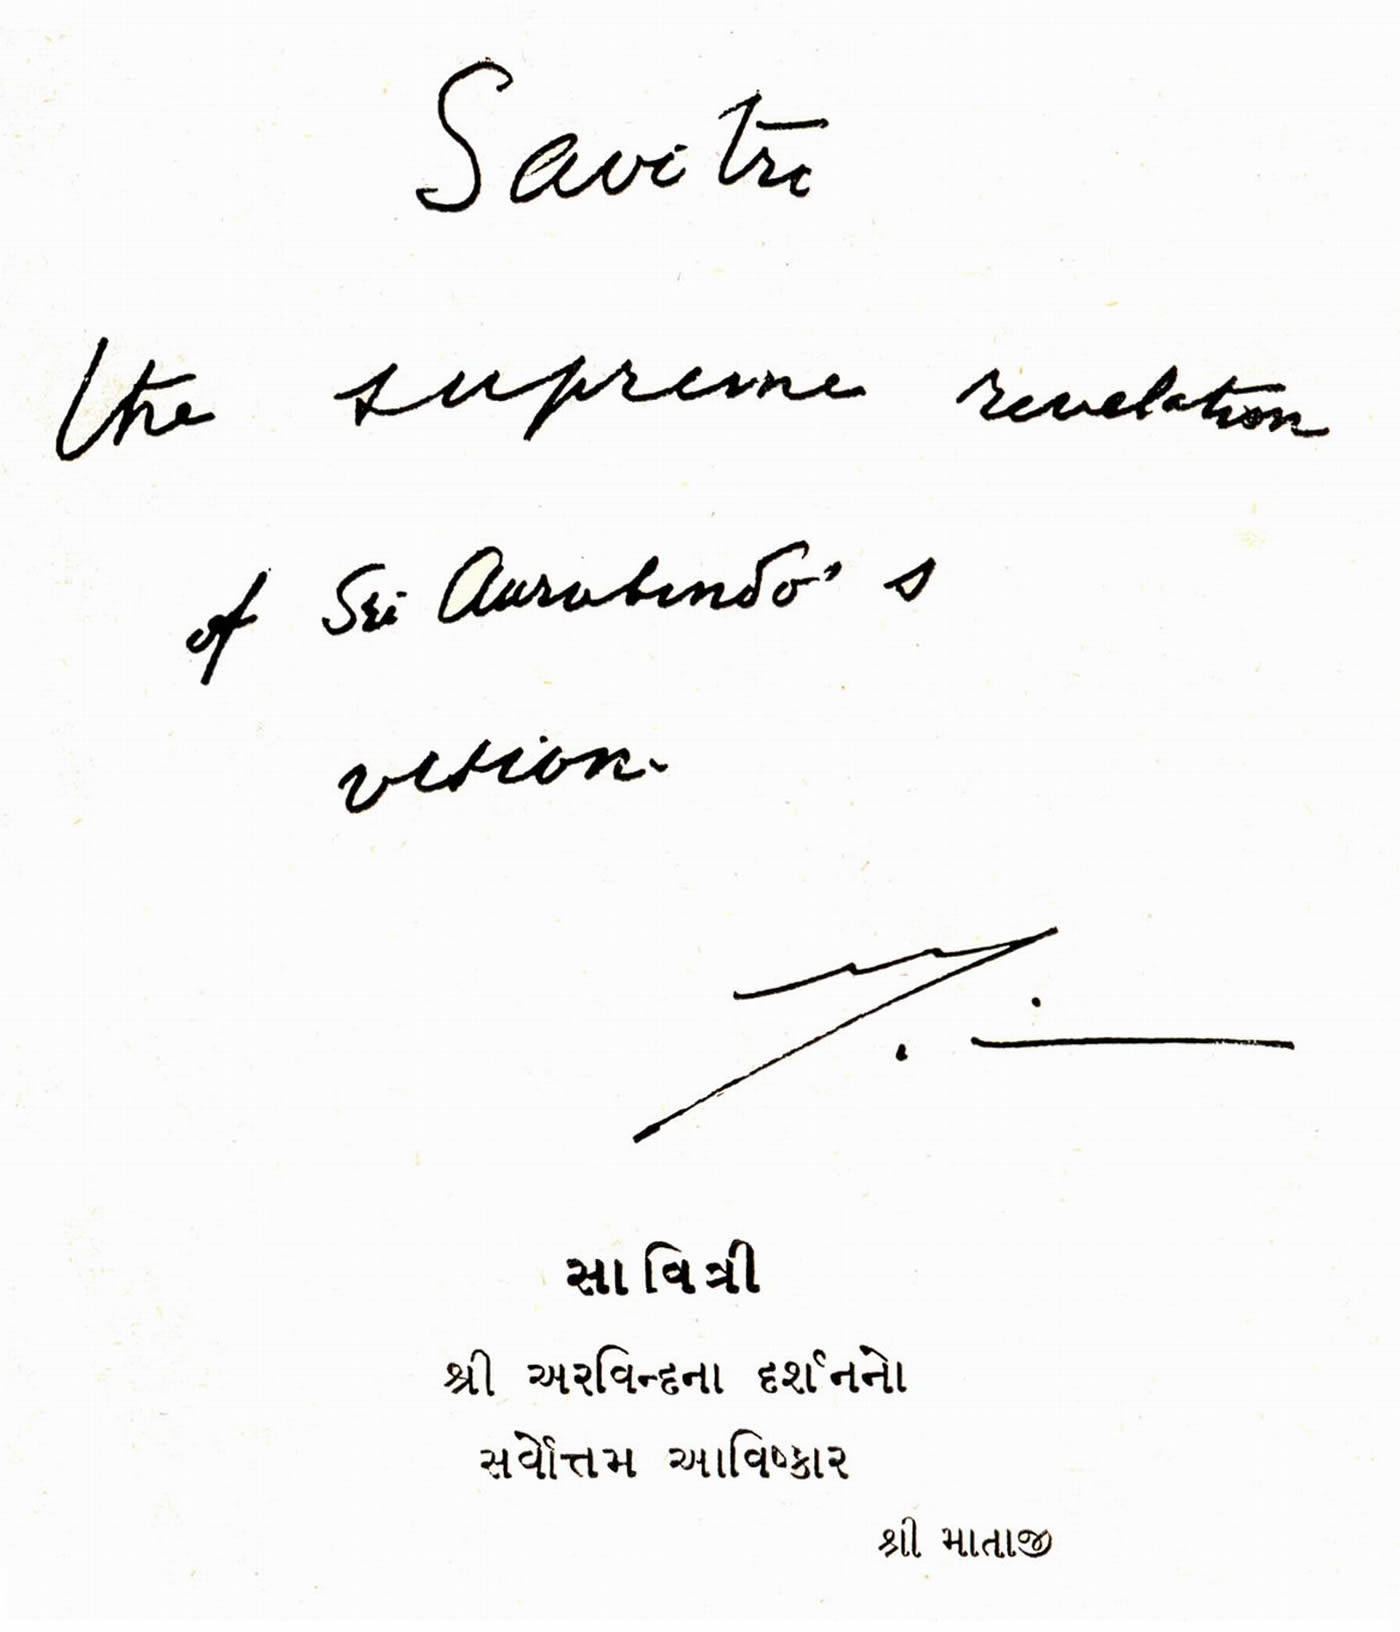 Savitri
the supreme revelation
of Sri Aurobindo's
vision.
સાવિત્રી
શ્રી અરવિન્દના દર્શનનો
સર્વોત્તમ આવિષ્કાર
શ્રી માતાજી